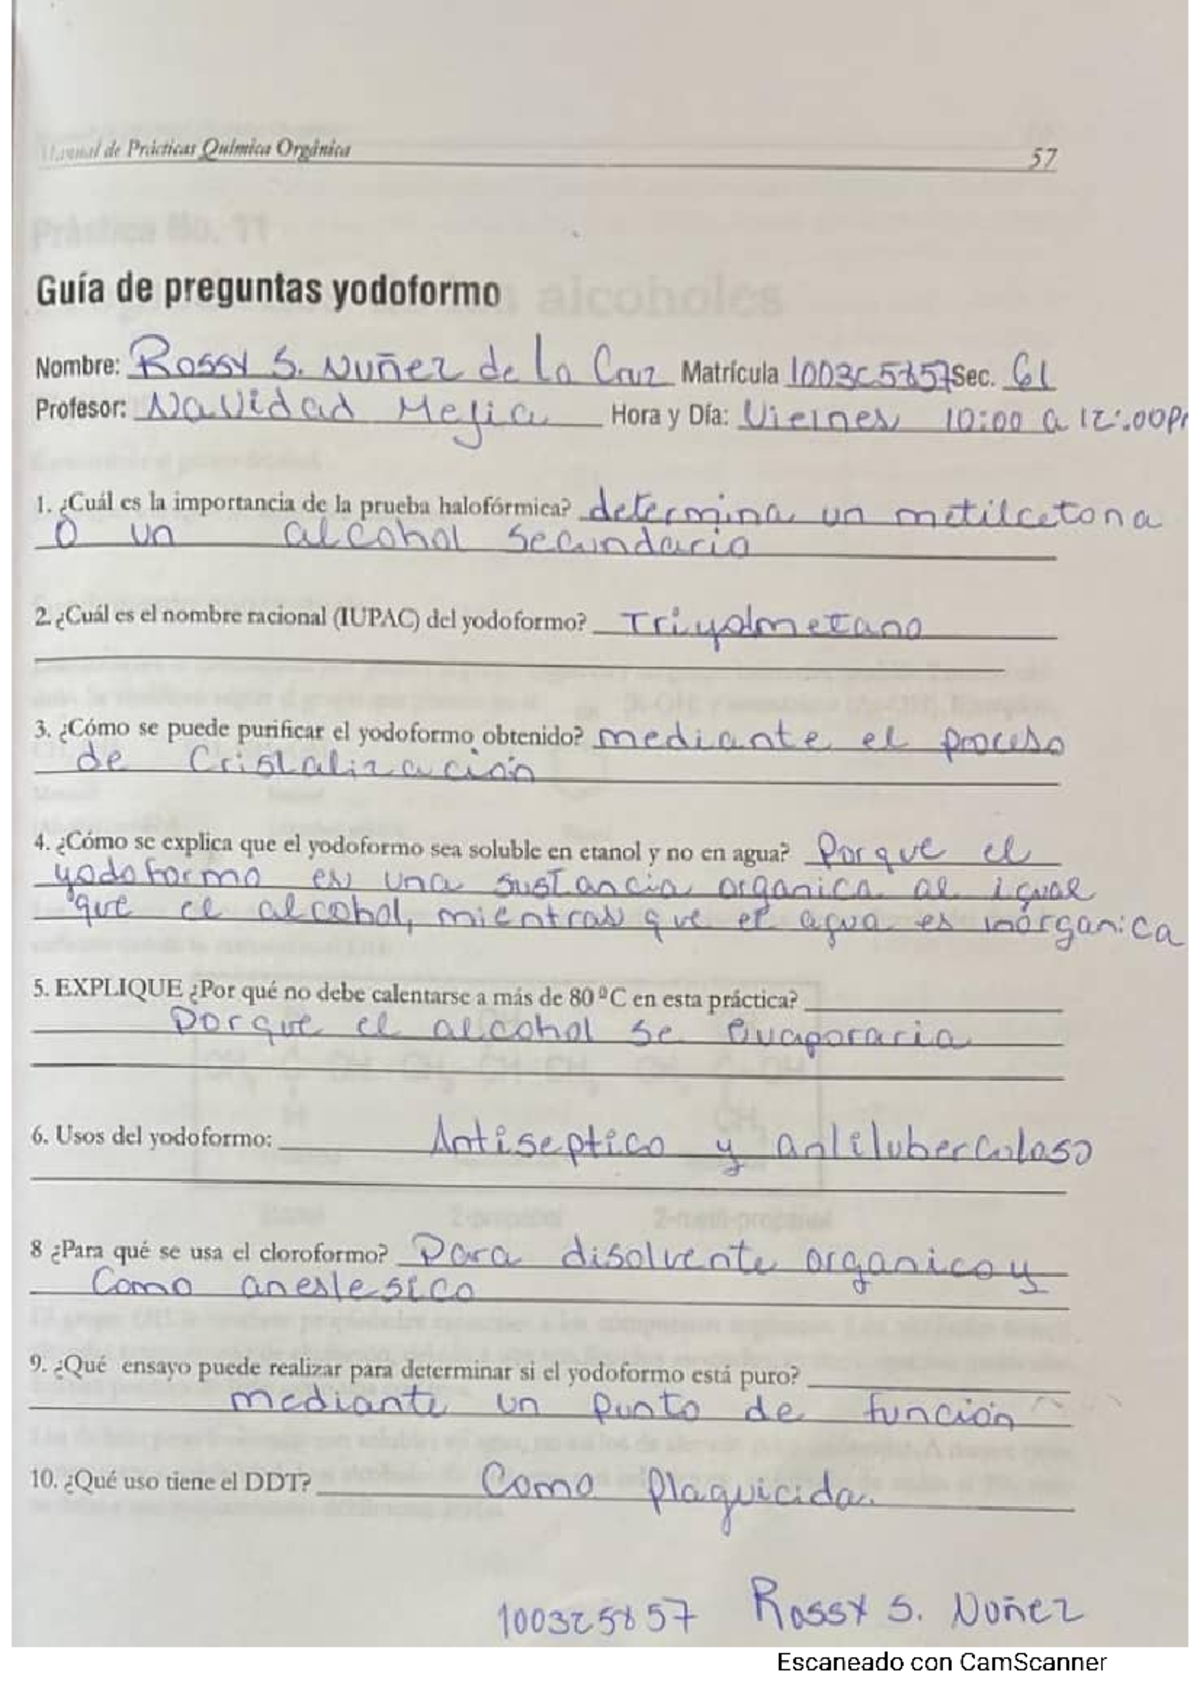 Manual de Prácticas Química Orgánica 57
Práctica No. 11
alcoholes
Guía de preguntas yodoformo
Nombre: Rossy S. Nuñez de La Cruz Matrícula Sec. 61
Profesor: Navidad Mejia Hora y Día: Viernes 10:00 a 12:00
1. ¿Cuál es la importancia de la prueba halofórmica? determina un metilcetona
o un alcohol secundario
2. ¿Cuál es el nombre racional (IUPAC) del yodoformo? Triyolmetano
3. ¿Cómo se puede purificar el yodoformo obtenido? mediante el proceso
de Cristalización
4. ¿Cómo se explica que el yodoformo sea soluble en etanol y no en agua? Porque el
yodoformo es una sustancia organica al igual
que el alcohol, mientras que el agua es inórganica
5. EXPLIQUE ¿Por qué no debe calentarse a más de 80 ºC en esta práctica?
Porque el alcohol se evaporaria
6. Usos del yodoformo: Antiseptico y antituberculoso
8 ¿Para qué se usa el cloroformo? Para disolvente organico y
Como anestesico
9. ¿Qué ensayo puede realizar para determinar si el yodoformo está puro?
mediante un punto de función
10. ¿Qué uso tiene el DDT? Como plaguicida.
100325857 Rossy S. Nuñez
Escaneado con CamScanner